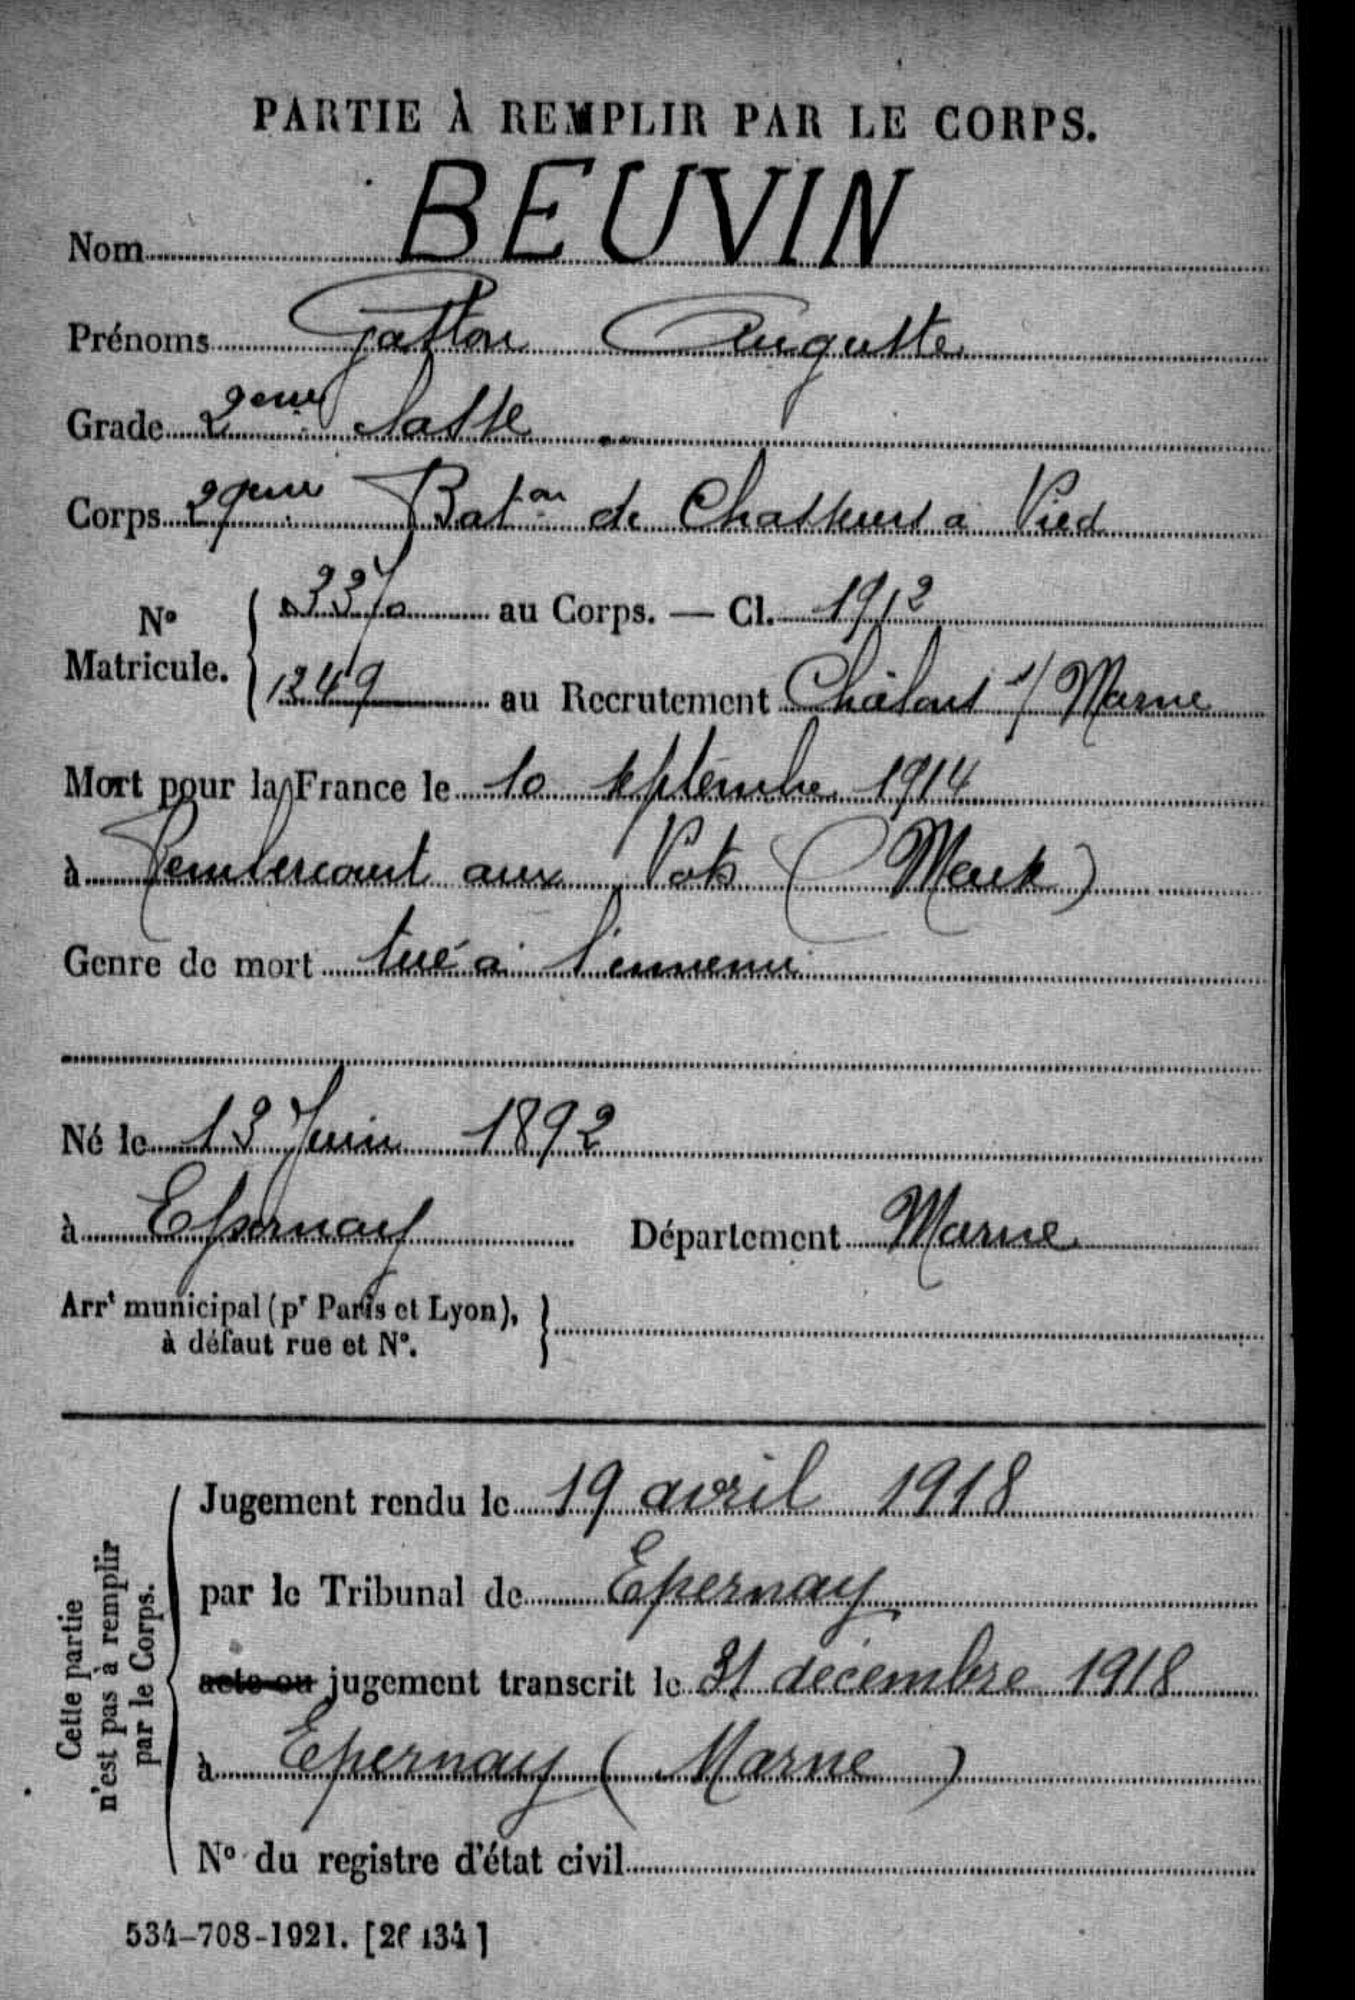 PARTIE À REMPLIR PAR LE CORPS.
Nom BEUVIN
Prénoms Gaston Auguste
Grade 2eme Classe
Corps 29eme Baton de Chasseurs à Pied
No Matricule.
au Corps. — Cl. 1912
1249 au Recrutement Châlons s/ Marne
Mort pour la France le 10 septembre 1914
à Rembercourt aux Pots (Meuse)
Genre de mort tué à l'ennemi
Né le 13 Juin 1892
à Epernay Département Marne
Arrt municipal (pr Paris et Lyon),
à défaut rue et No.
Cette partie
n'est pas à remplir
par le Corps.
Jugement rendu le 19 avril 1918
par le Tribunal de Epernay
acte ou jugement transcrit le 31 décembre 1918
à Epernay (Marne)
No du registre d'état civil
534-708-1921. [26434]